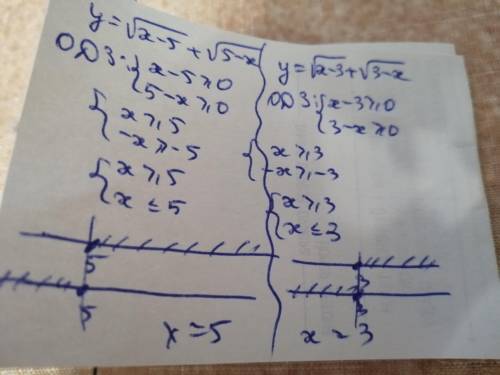 y=√x-5+√5-x
ОДЗ: { x-5≥0
5-x≥0
{ x≥5
-x≥-5
{ x≥5
x≤5
5
5
x=5
y=√x-3+√3-x
ОДЗ: { x-3≥0
3-x≥0
{ x≥3
-x≥-3
{ x≥3
x≤3
3
3
x=3